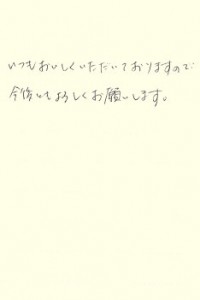 いつもおいしくいただいておりますので
今後いもよろしくお願いします。